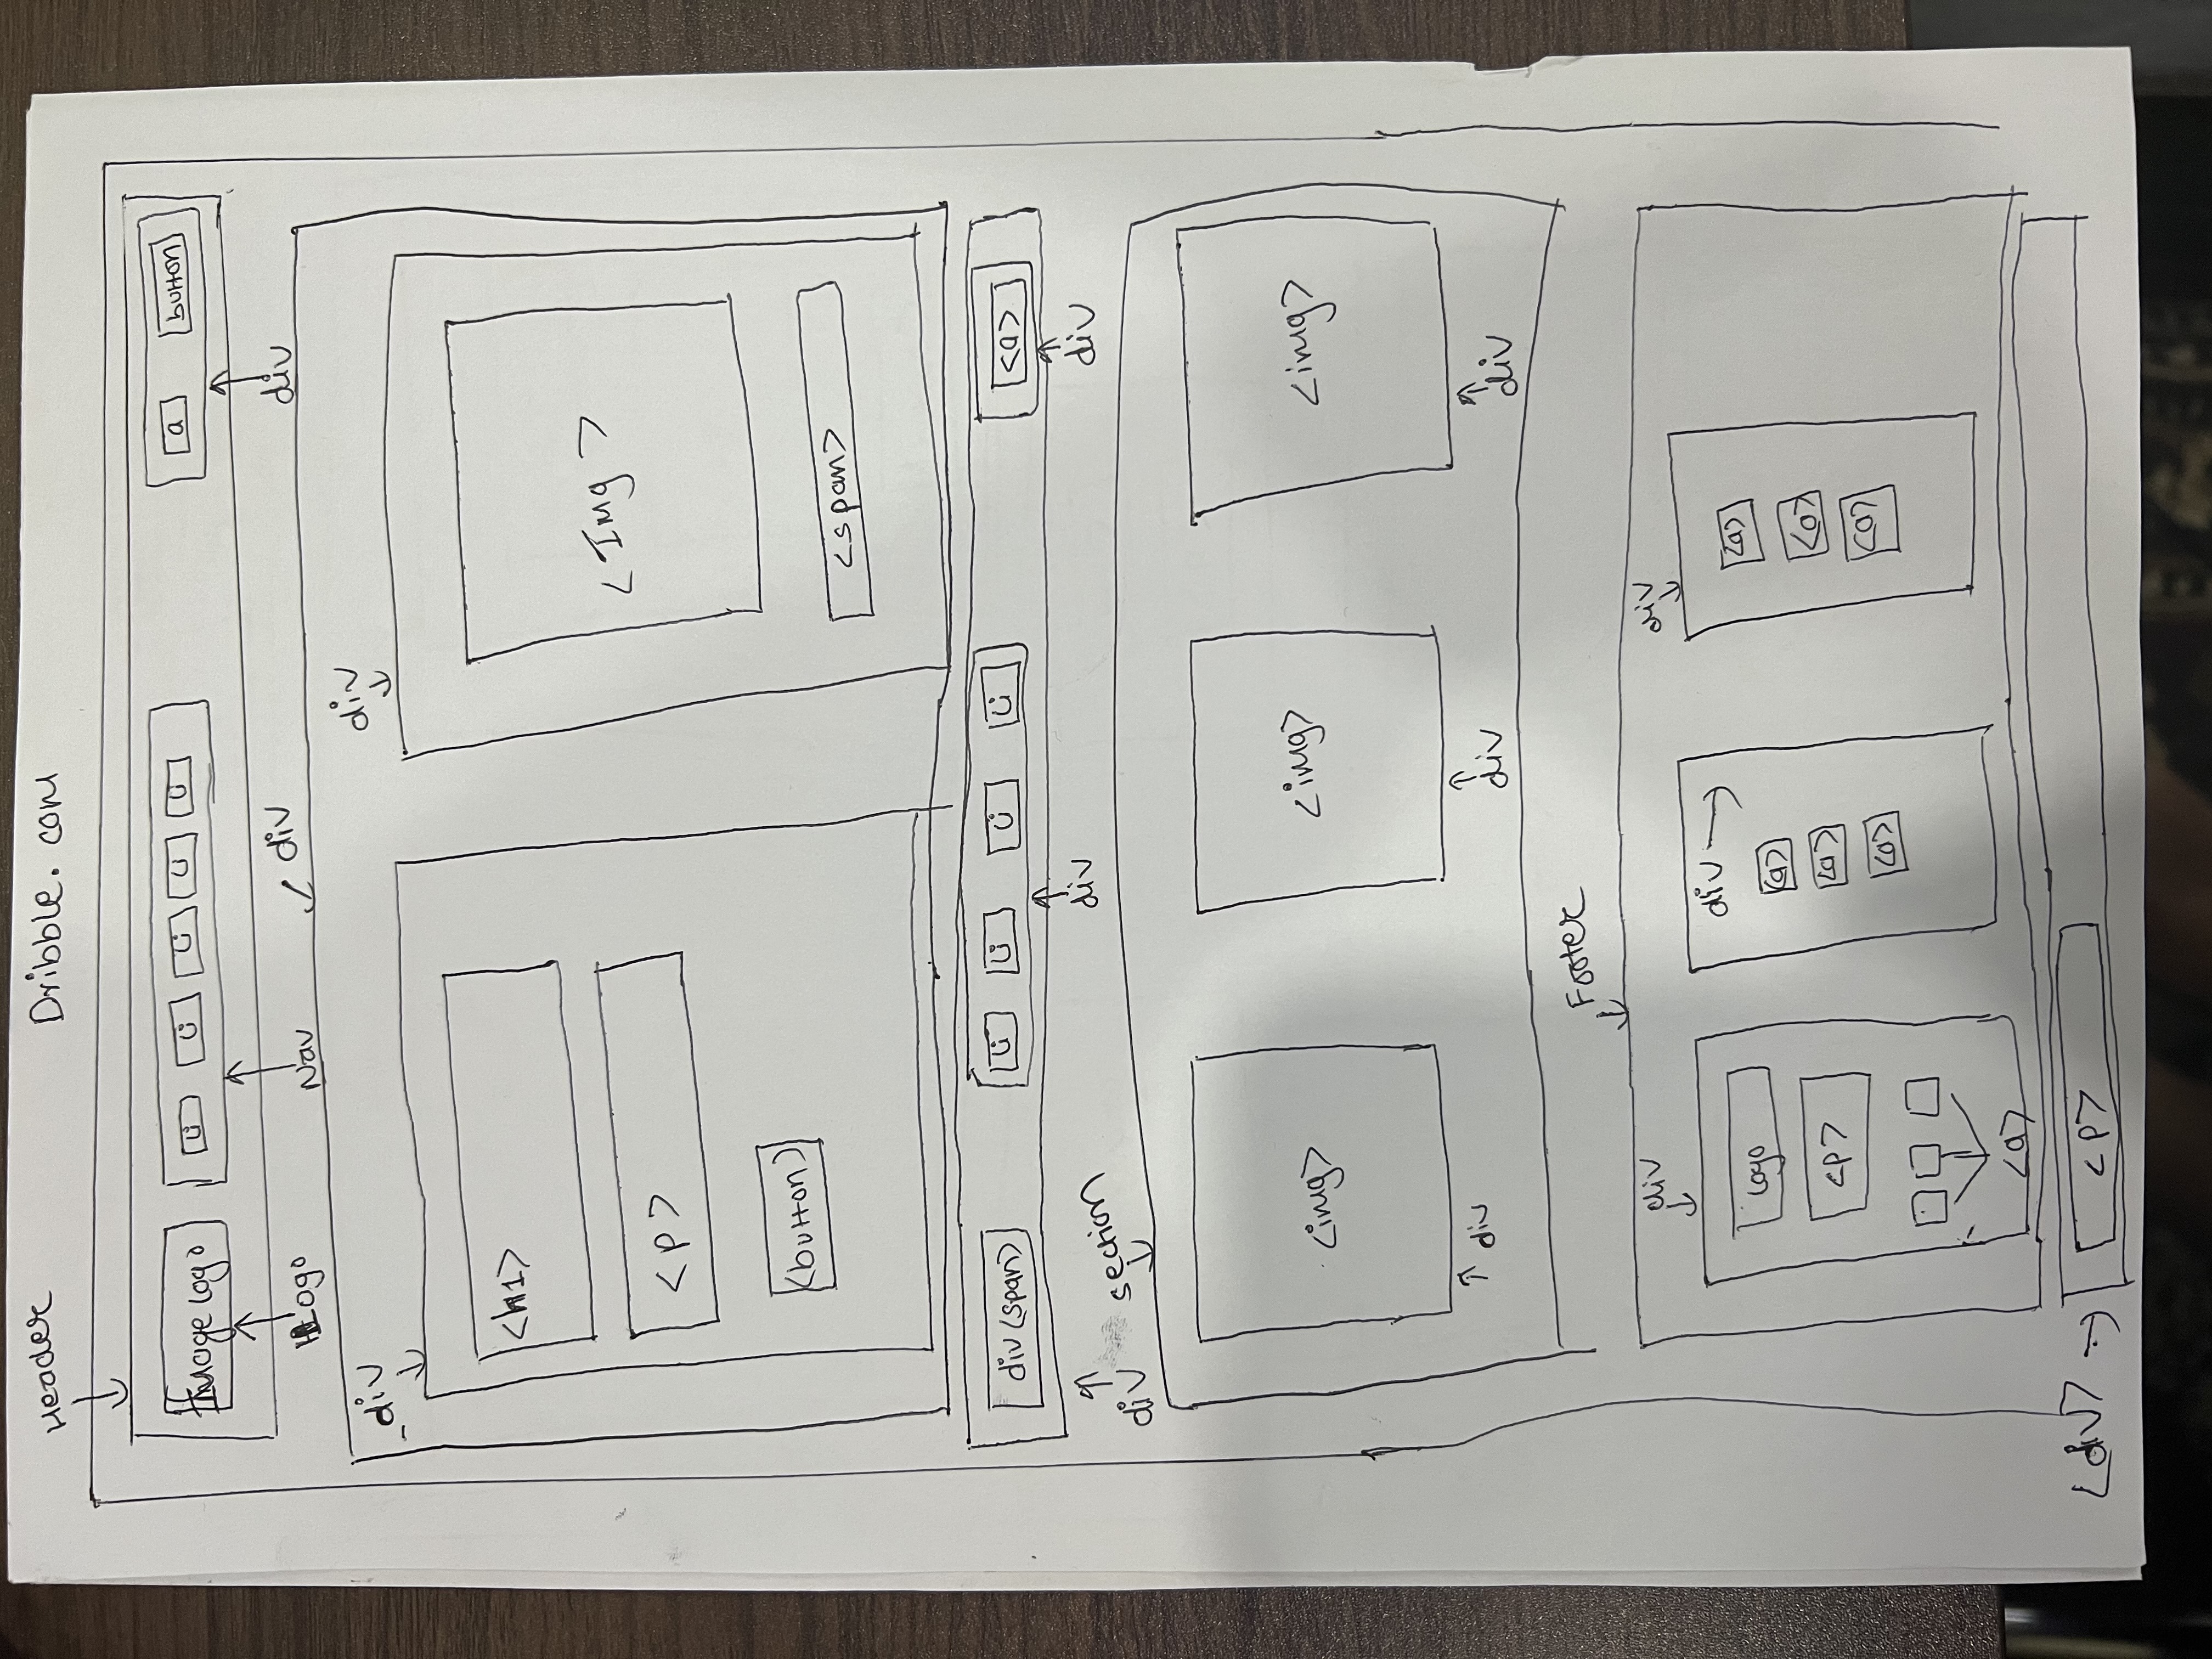 Header
Dribble. com
Image logo
Li Li Li Li Li
a button
Logo
Nav
div
div
div
div
<h1>
<p>
<button>
<Img>
<span>
div(span)
Li Li Li Li
<a>
div
div
div
section
<img>
<img>
<img>
div
div
div
Footer
div
div
div
Logo
<p>
<a>
<a>
<a>
<a>
<a>
<a>
<a>
<div>
<p>